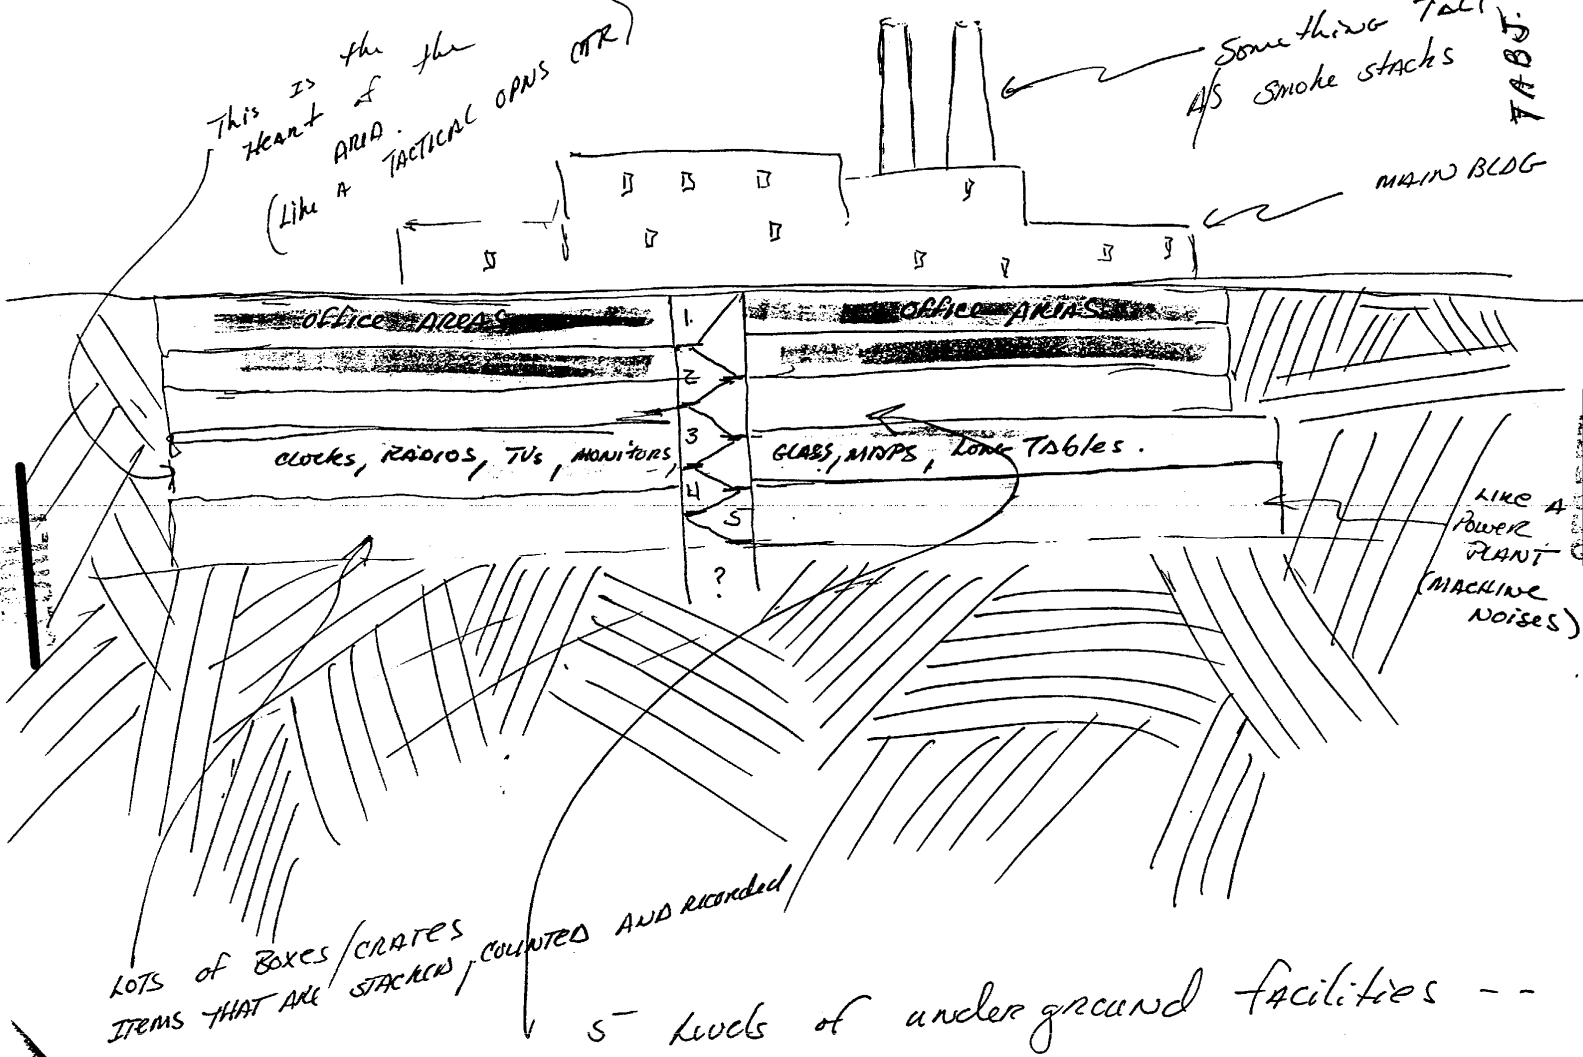 This is the
Heart of the
AREA.
(Like A TACTICAL OPNS CTR)
Something TALL
AS Smoke stACks
TAB J.
MAIN BLDG
office AREAS
1.
office AREAS
2
3
clocks, RADIOS, TVs, MONITORS,
GLASS, MAPS, LONG TAbles.
4
5
LIKE A
POWER
PLANT
(MACHINE
NOISES)
?
LOTS of Boxes/CRATES
ITEMS THAT ARE STACKED, COUNTED AND RECORDED
5 Levels of underground facilities --